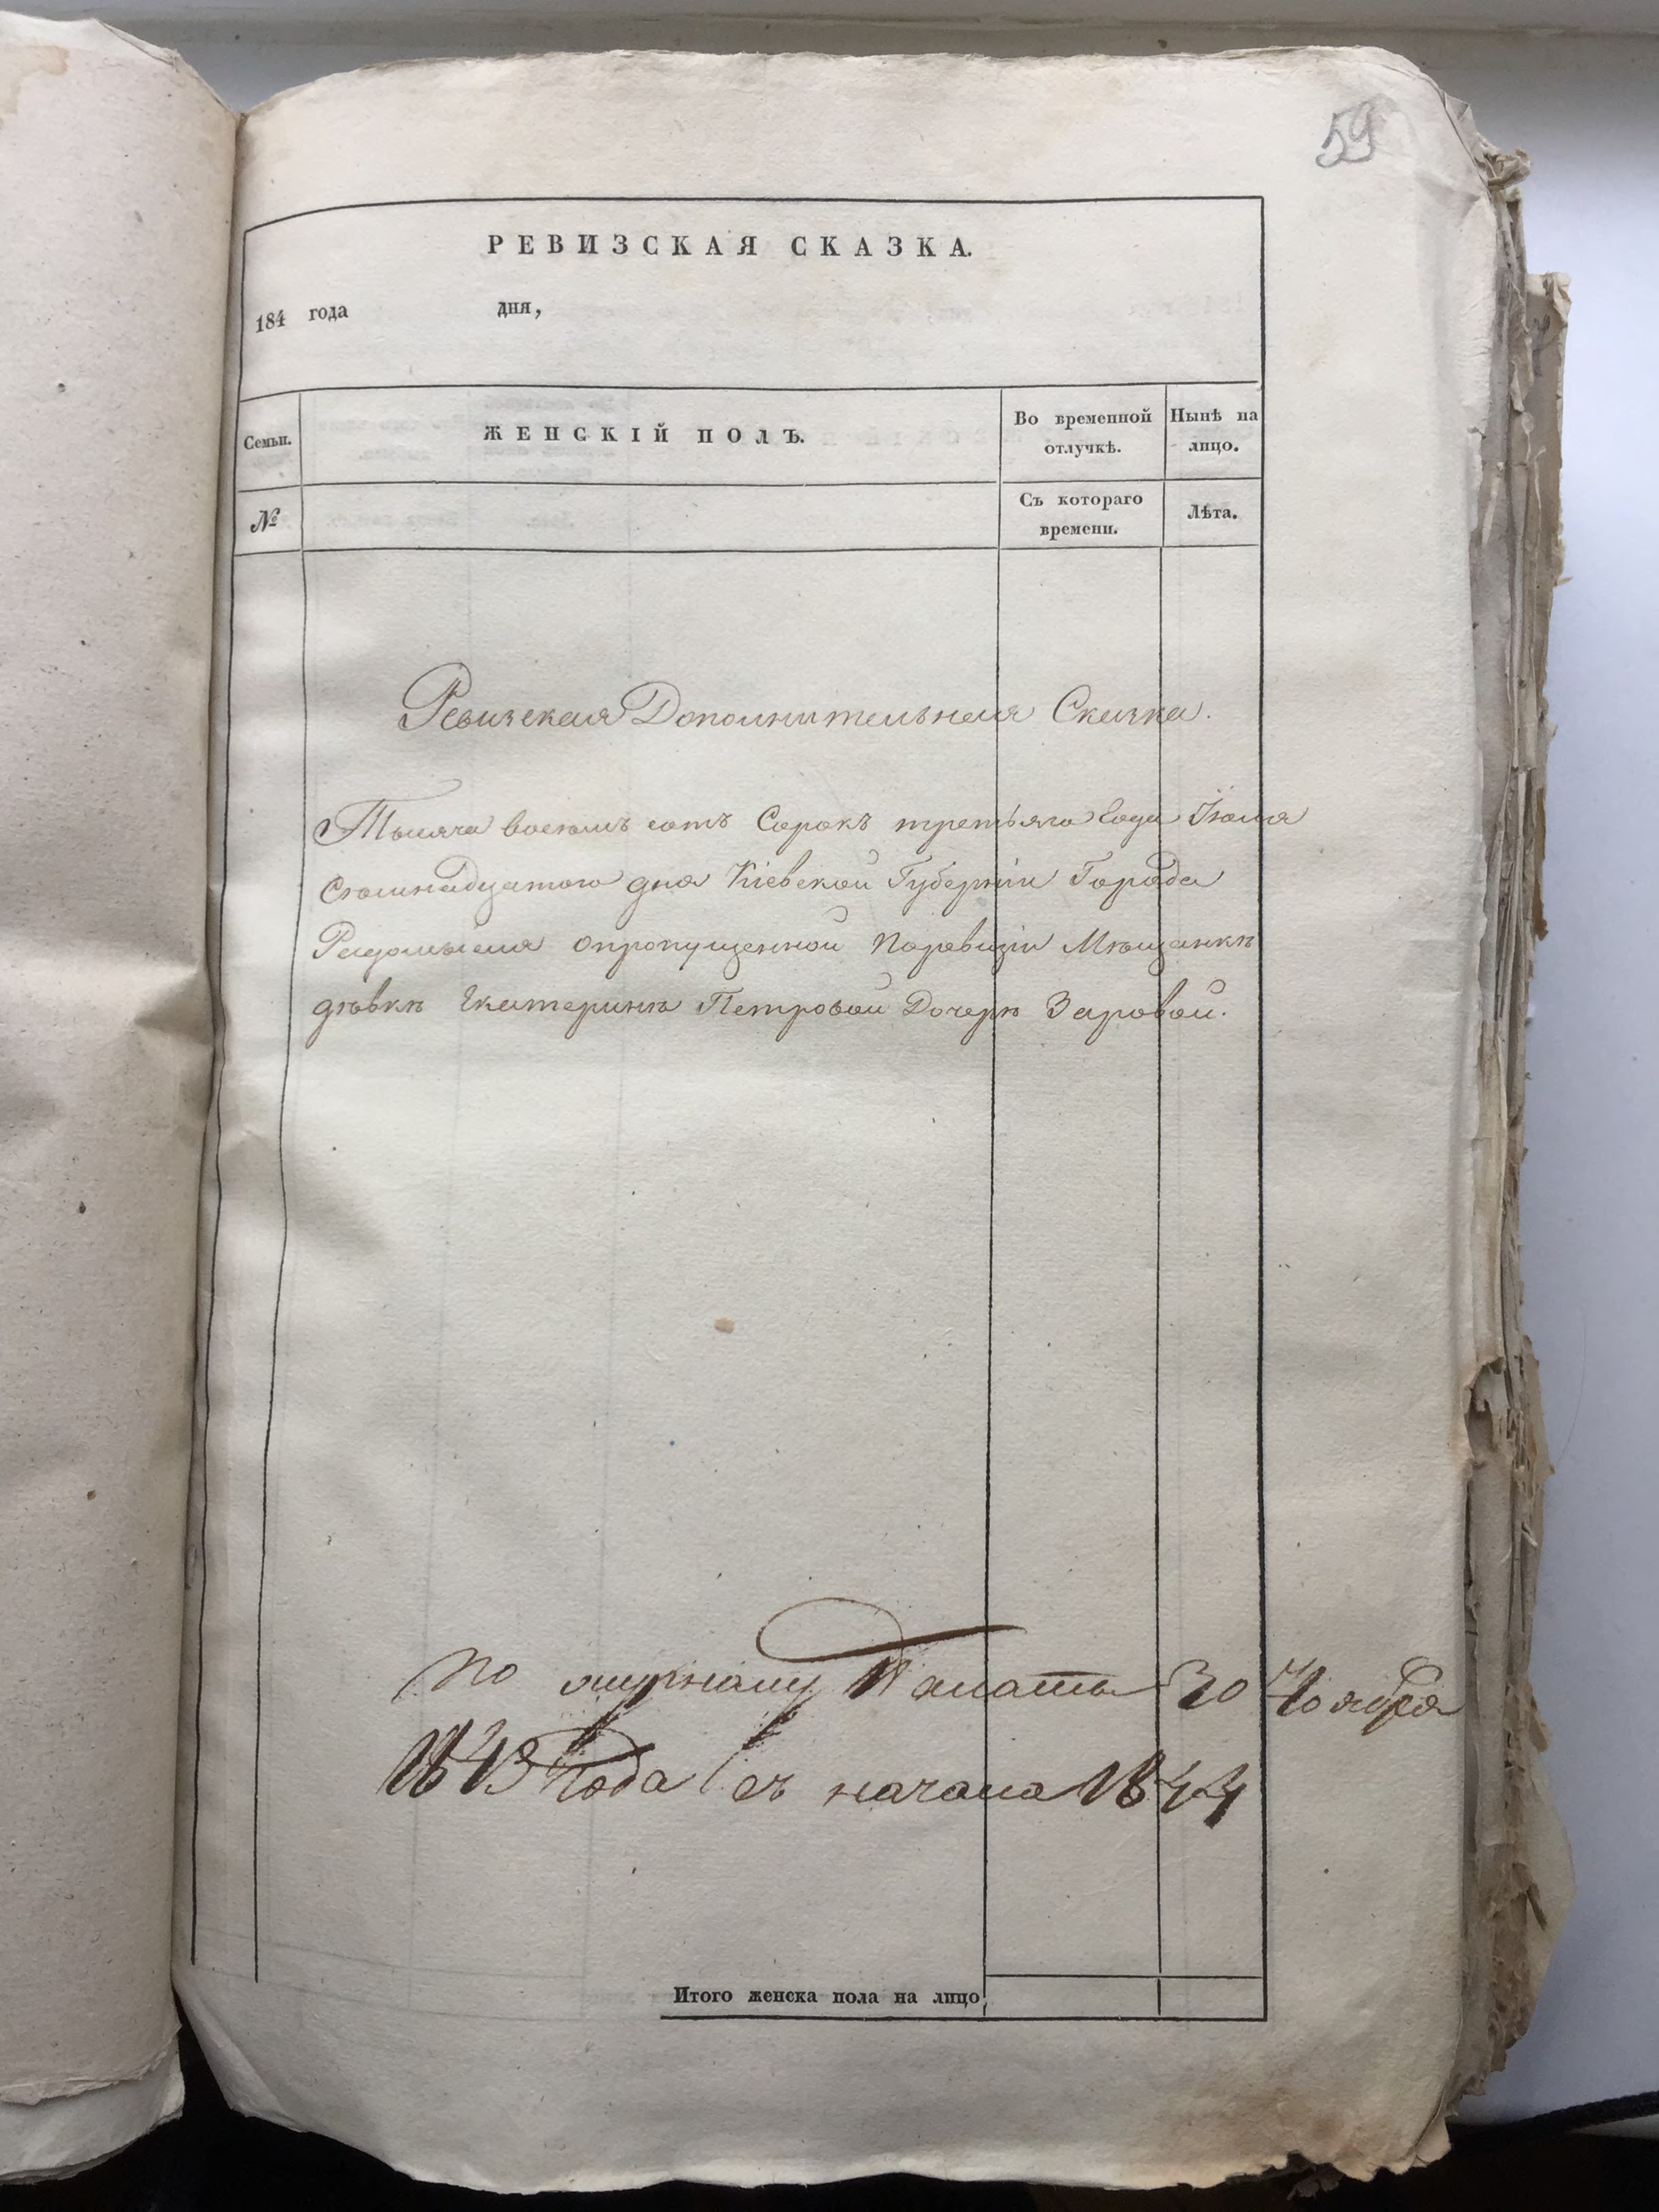 59
РЕВИЗСКАЯ СКАЗКА.
184 года дня,
Семьи. ЖЕНСКІЙ ПОЛЪ. Во временной отлучкѣ. Нынѣ на лицо.
№ Съ котораго времени. Лѣта.
Ревизская Дополнительная Сказка.
Тысяча восемь сотъ Сорокъ третьяго Года Іюля
Семнадцатого дня Кіевской Губерніи Города
Радомысля опропущенной Поревизіи Мѣщанкѣ
дѣвкѣ Екатеринѣ Петровой Дочерѣ Заровой.
По журналу Палаты 30 Ноября
1843 Года съ начала 1844
Итого женска пола на лицо